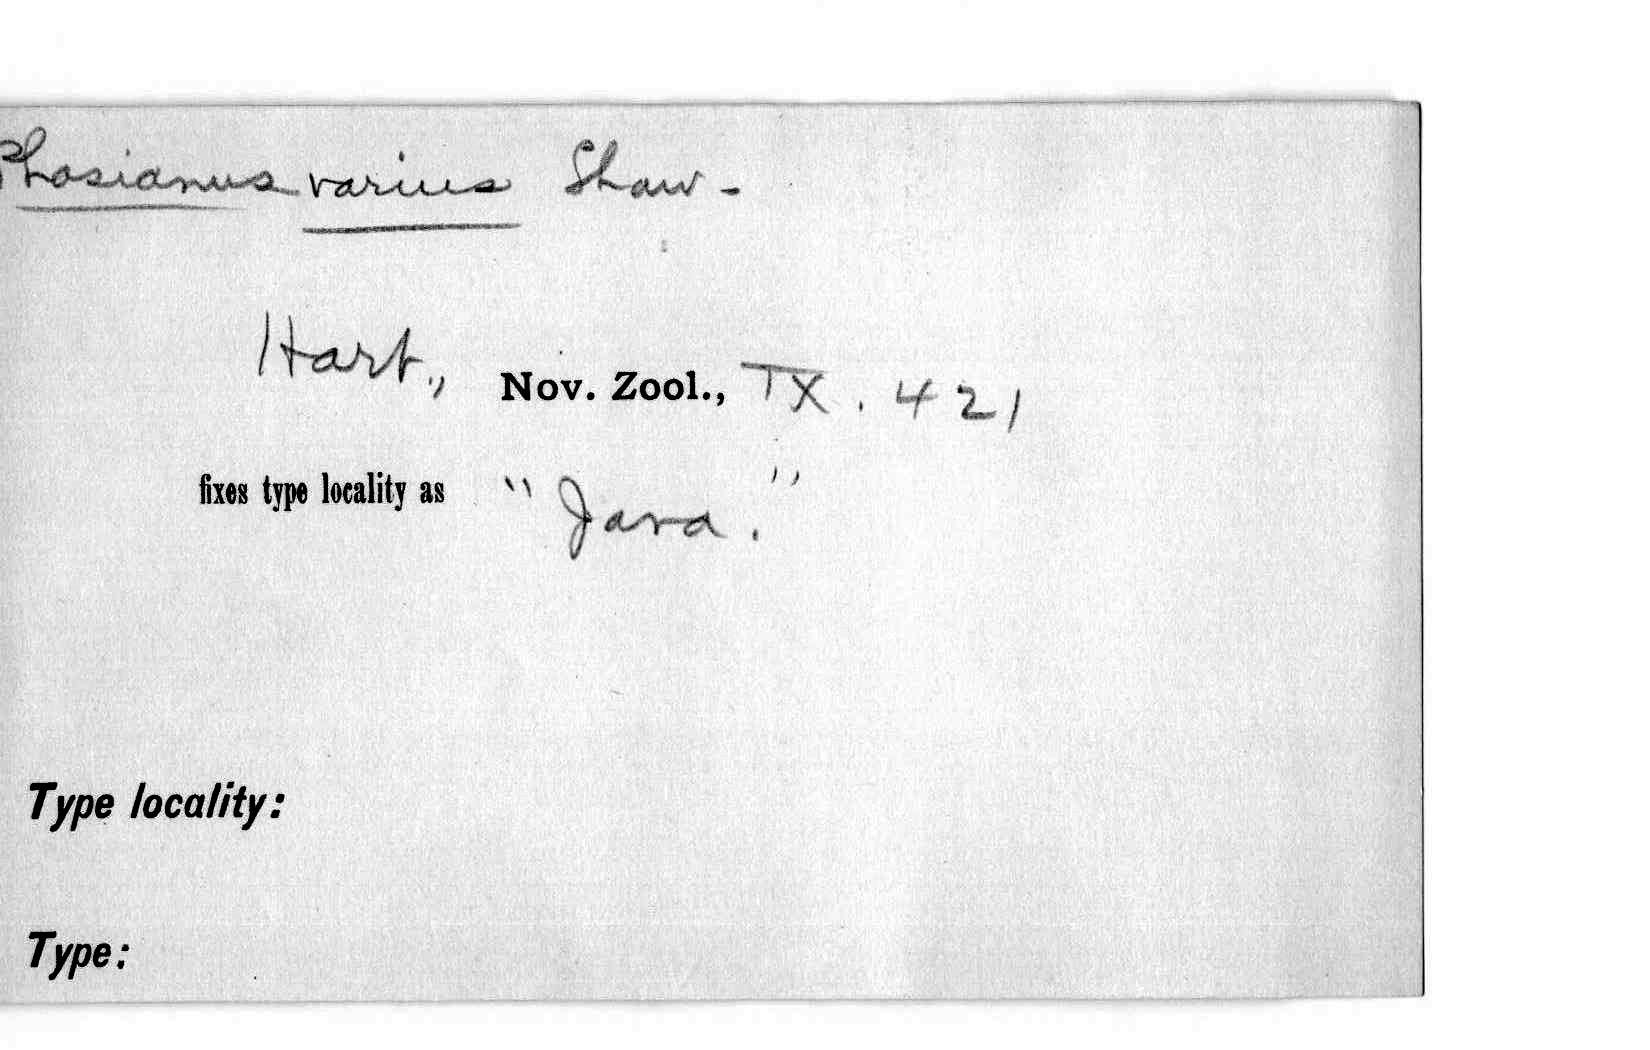 Phasianus varius Shaw -
Hart., Nov. Zool., IX. 421
fixes type locality as "Java."
Type locality:
Type: